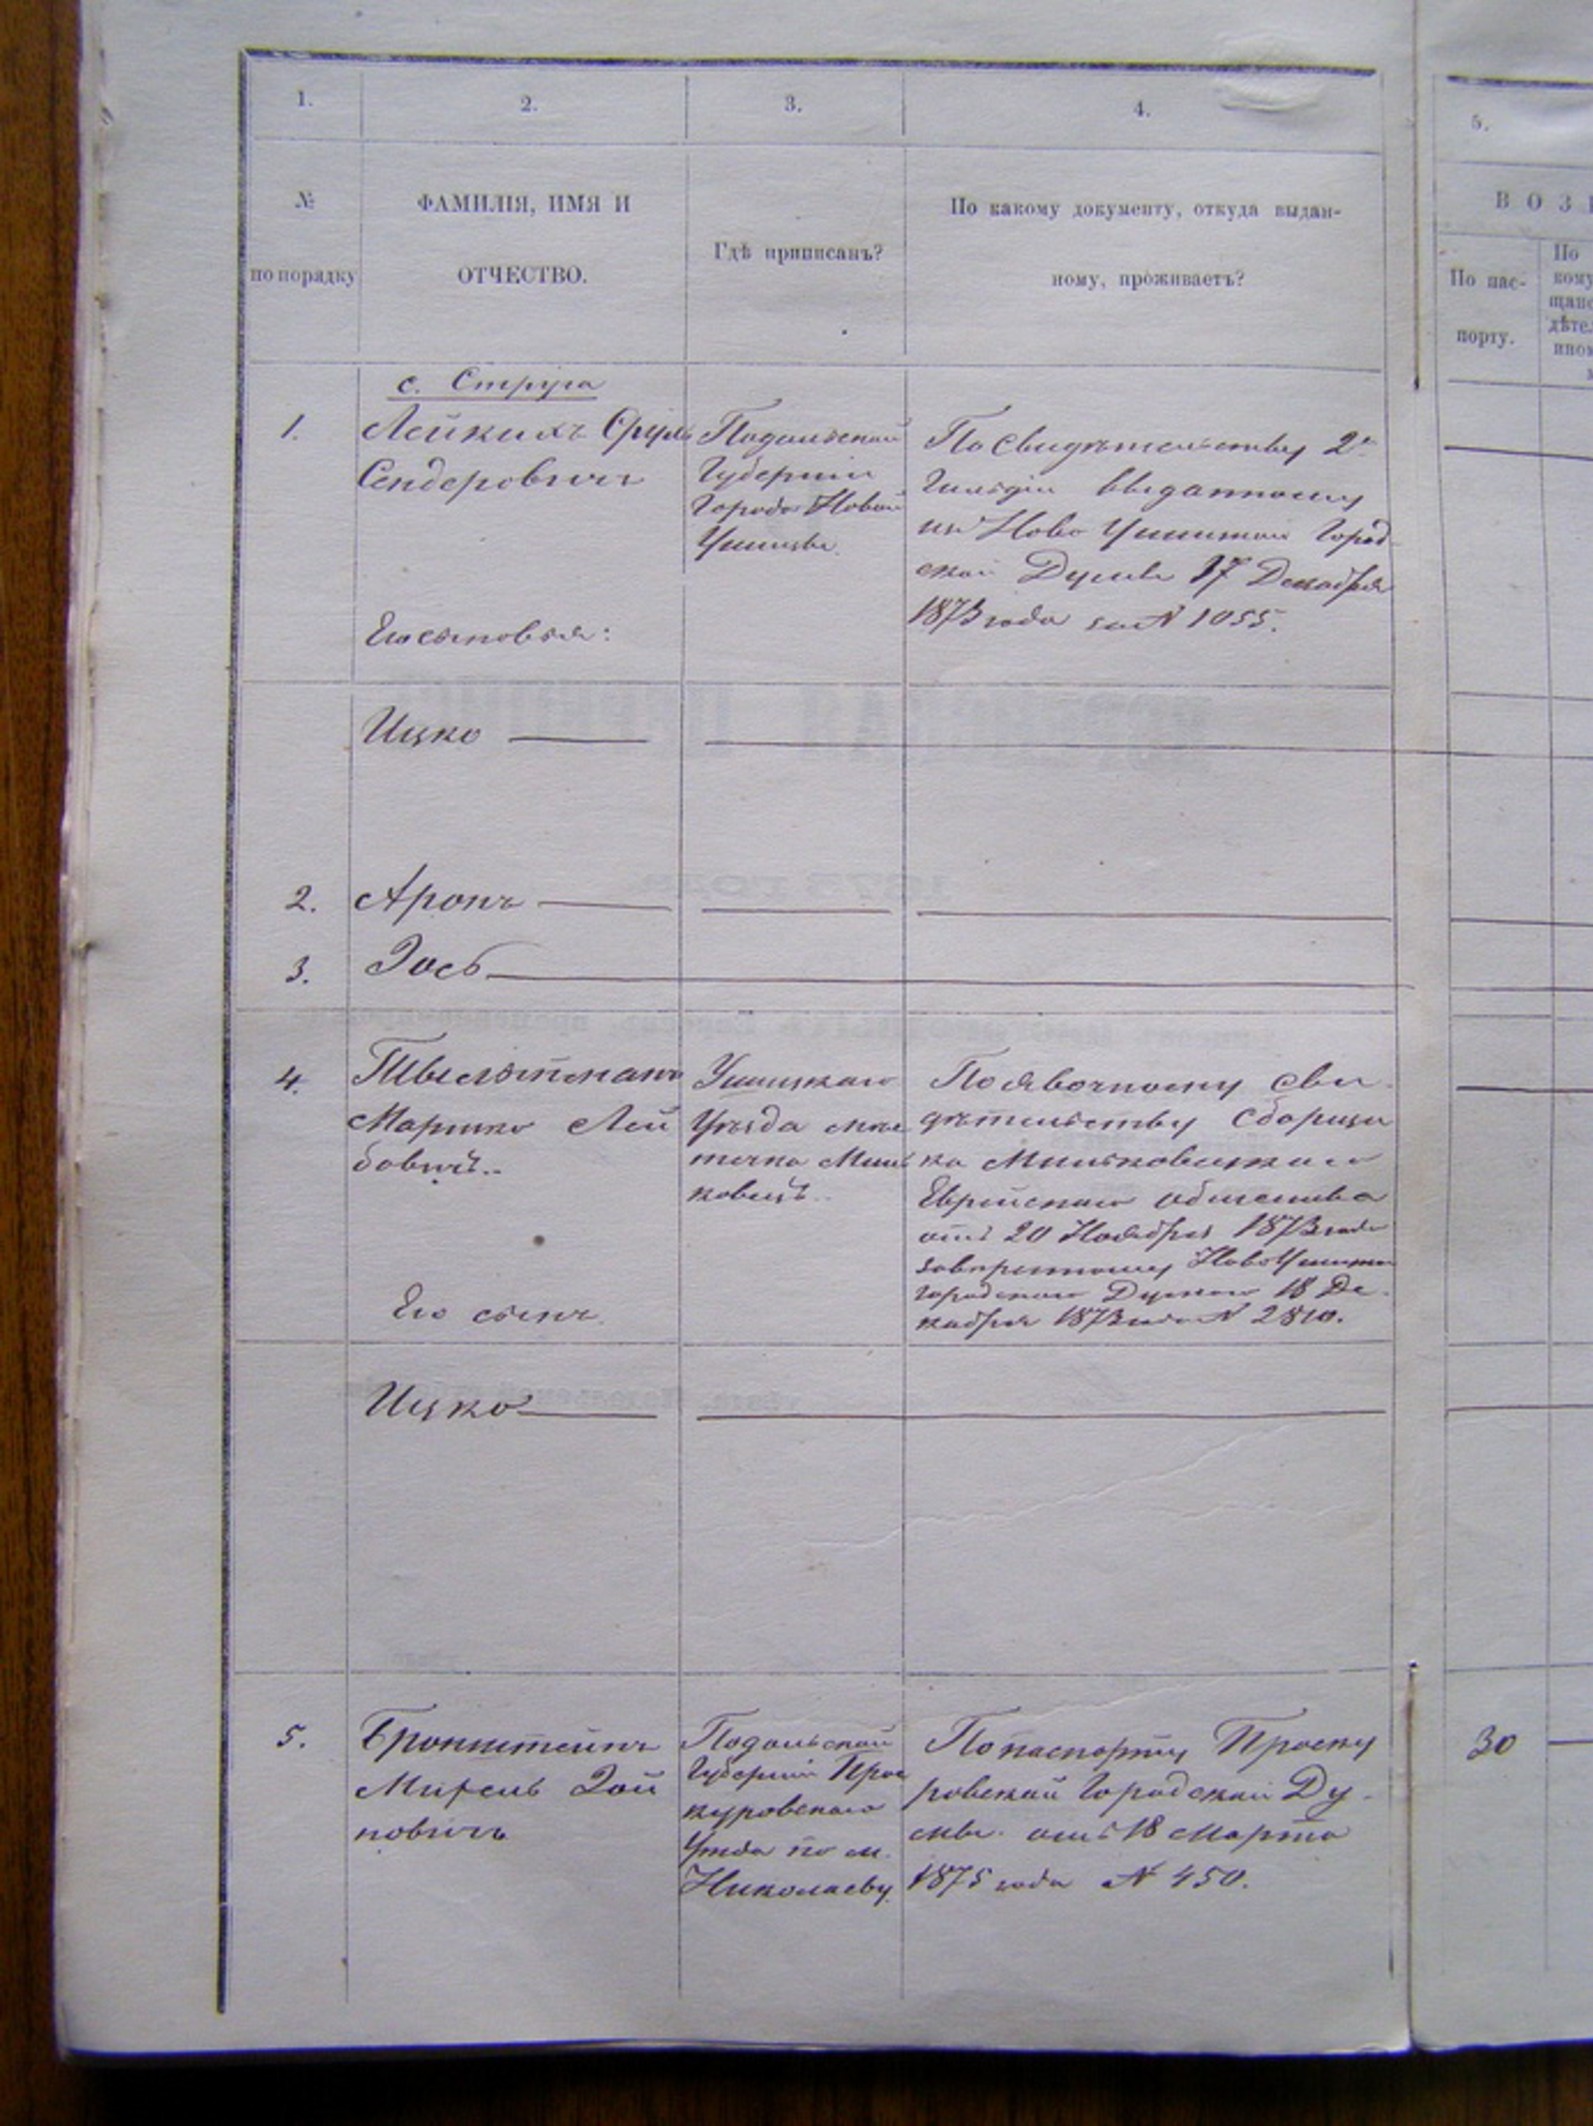 1.
2.
3.
4.
5.
№
по порядку
ФАМИЛІЯ, ИМЯ И
ОТЧЕСТВО.
Гдѣ приписанъ?
По какому документу, откуда выдан-
ному, проживаетъ?
ВОЗ
По пас-
порту.
По
с. Струга
1.
Лейкихъ Сруль
Сендеровичъ
Его сыновья:
Подольской
Губерніи
Города Новой
Ушицы
По Свидѣтельству 2й
Гильдіи выданному
изъ Ново Ушицкой Город-
ской Думы 17 Декабря
1873 года за № 1055.
Ицко
2.
Аронъ
3.
Іось
4.
Швельтманъ
Мошко Лей
бовичъ.
Его сынъ
Ушицкаго
Уѣзда мѣс
течка Миль
ковецъ.
По явочному сви-
дѣтельству Сборщи
ка Мильковецкаго
Еврейскаго общества
отъ 20 Ноября 1873 года
завѣренному НовоУшицкою
Городскою Думою 18 Де-
кабря 1873 года № 2810.
Ицко
5.
Бронштейнъ
Мифель Зой
новичъ
Подольской
Губерніи Прос
куровскаго
Уѣзда по м.
Николаеву
По паспорту Проску
ровской Городской Ду-
мы отъ 18 Марта
1875 года № 450.
30